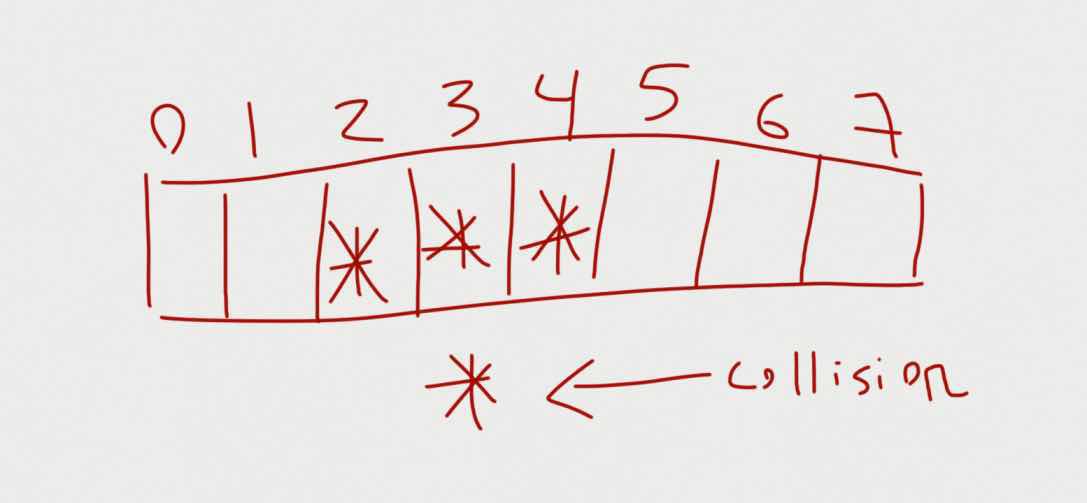 0 1 2 3 4 5 6 7
* * *
* ← collision